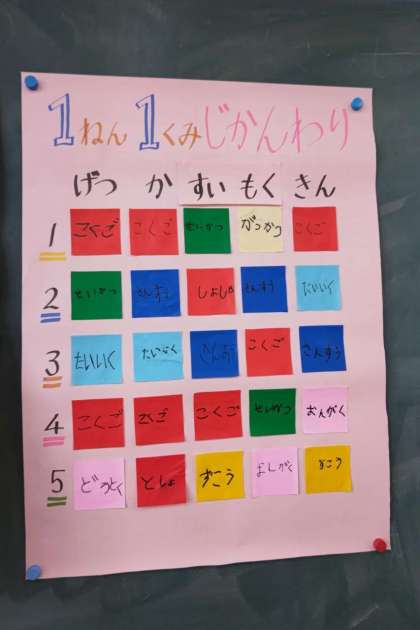 1ねん1くみじかんわり
げつ か すい もく きん
1 こくご こくご せいかつ がっかつ こくご
2 せいかつ さんすう しょしゃ さんすう たいいく
3 たいいく たいいく さんすう こくご さんすう
4 こくご こくご こくご せいかつ おんがく
5 どうとく としょ ずこう おんがく ずこう